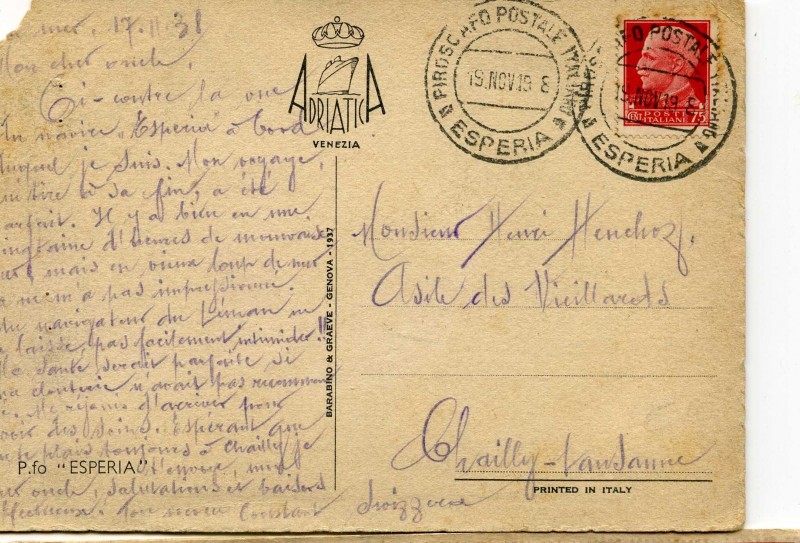 mer, 17.11.38
Mon cher oncle,
Ci-contre la vue
du navire "Esperia" à bord
duquel je suis. Mon voyage,
tire à sa fin, a été
parfait. Il y a bien eu une
vingtaine d'heures de mauvaise
mer, mais en vieux loup de mer
ça ne m'a pas impressionné.
navigateur du Léman ne
laisse pas facilement intimider!!
La santé serait parfaite si
ma n'avait pas
Me réjouis d'arriver pour
avoir des soins. Espérant que
te plais toujours à Chailly je
t'envoie, mon
cher oncle, salutations et baisers
affectueux. Ton neveu Constant
P.fo "ESPERIA"
ADRIATICA
VENEZIA
BARABINO & GRAEVE - GENOVA - 1937
PIROSCAFO POSTALE ITALIANO
19.NOV.19 8
ESPERIA
PIROSCAFO POSTALE ITALIANO
19.NOV.19 8
ESPERIA
POSTE
ITALIANE 75
Monsieur Henri Henchoz.
Asile des Vieillards
Chailly-Lausanne
Svizzera
PRINTED IN ITALY